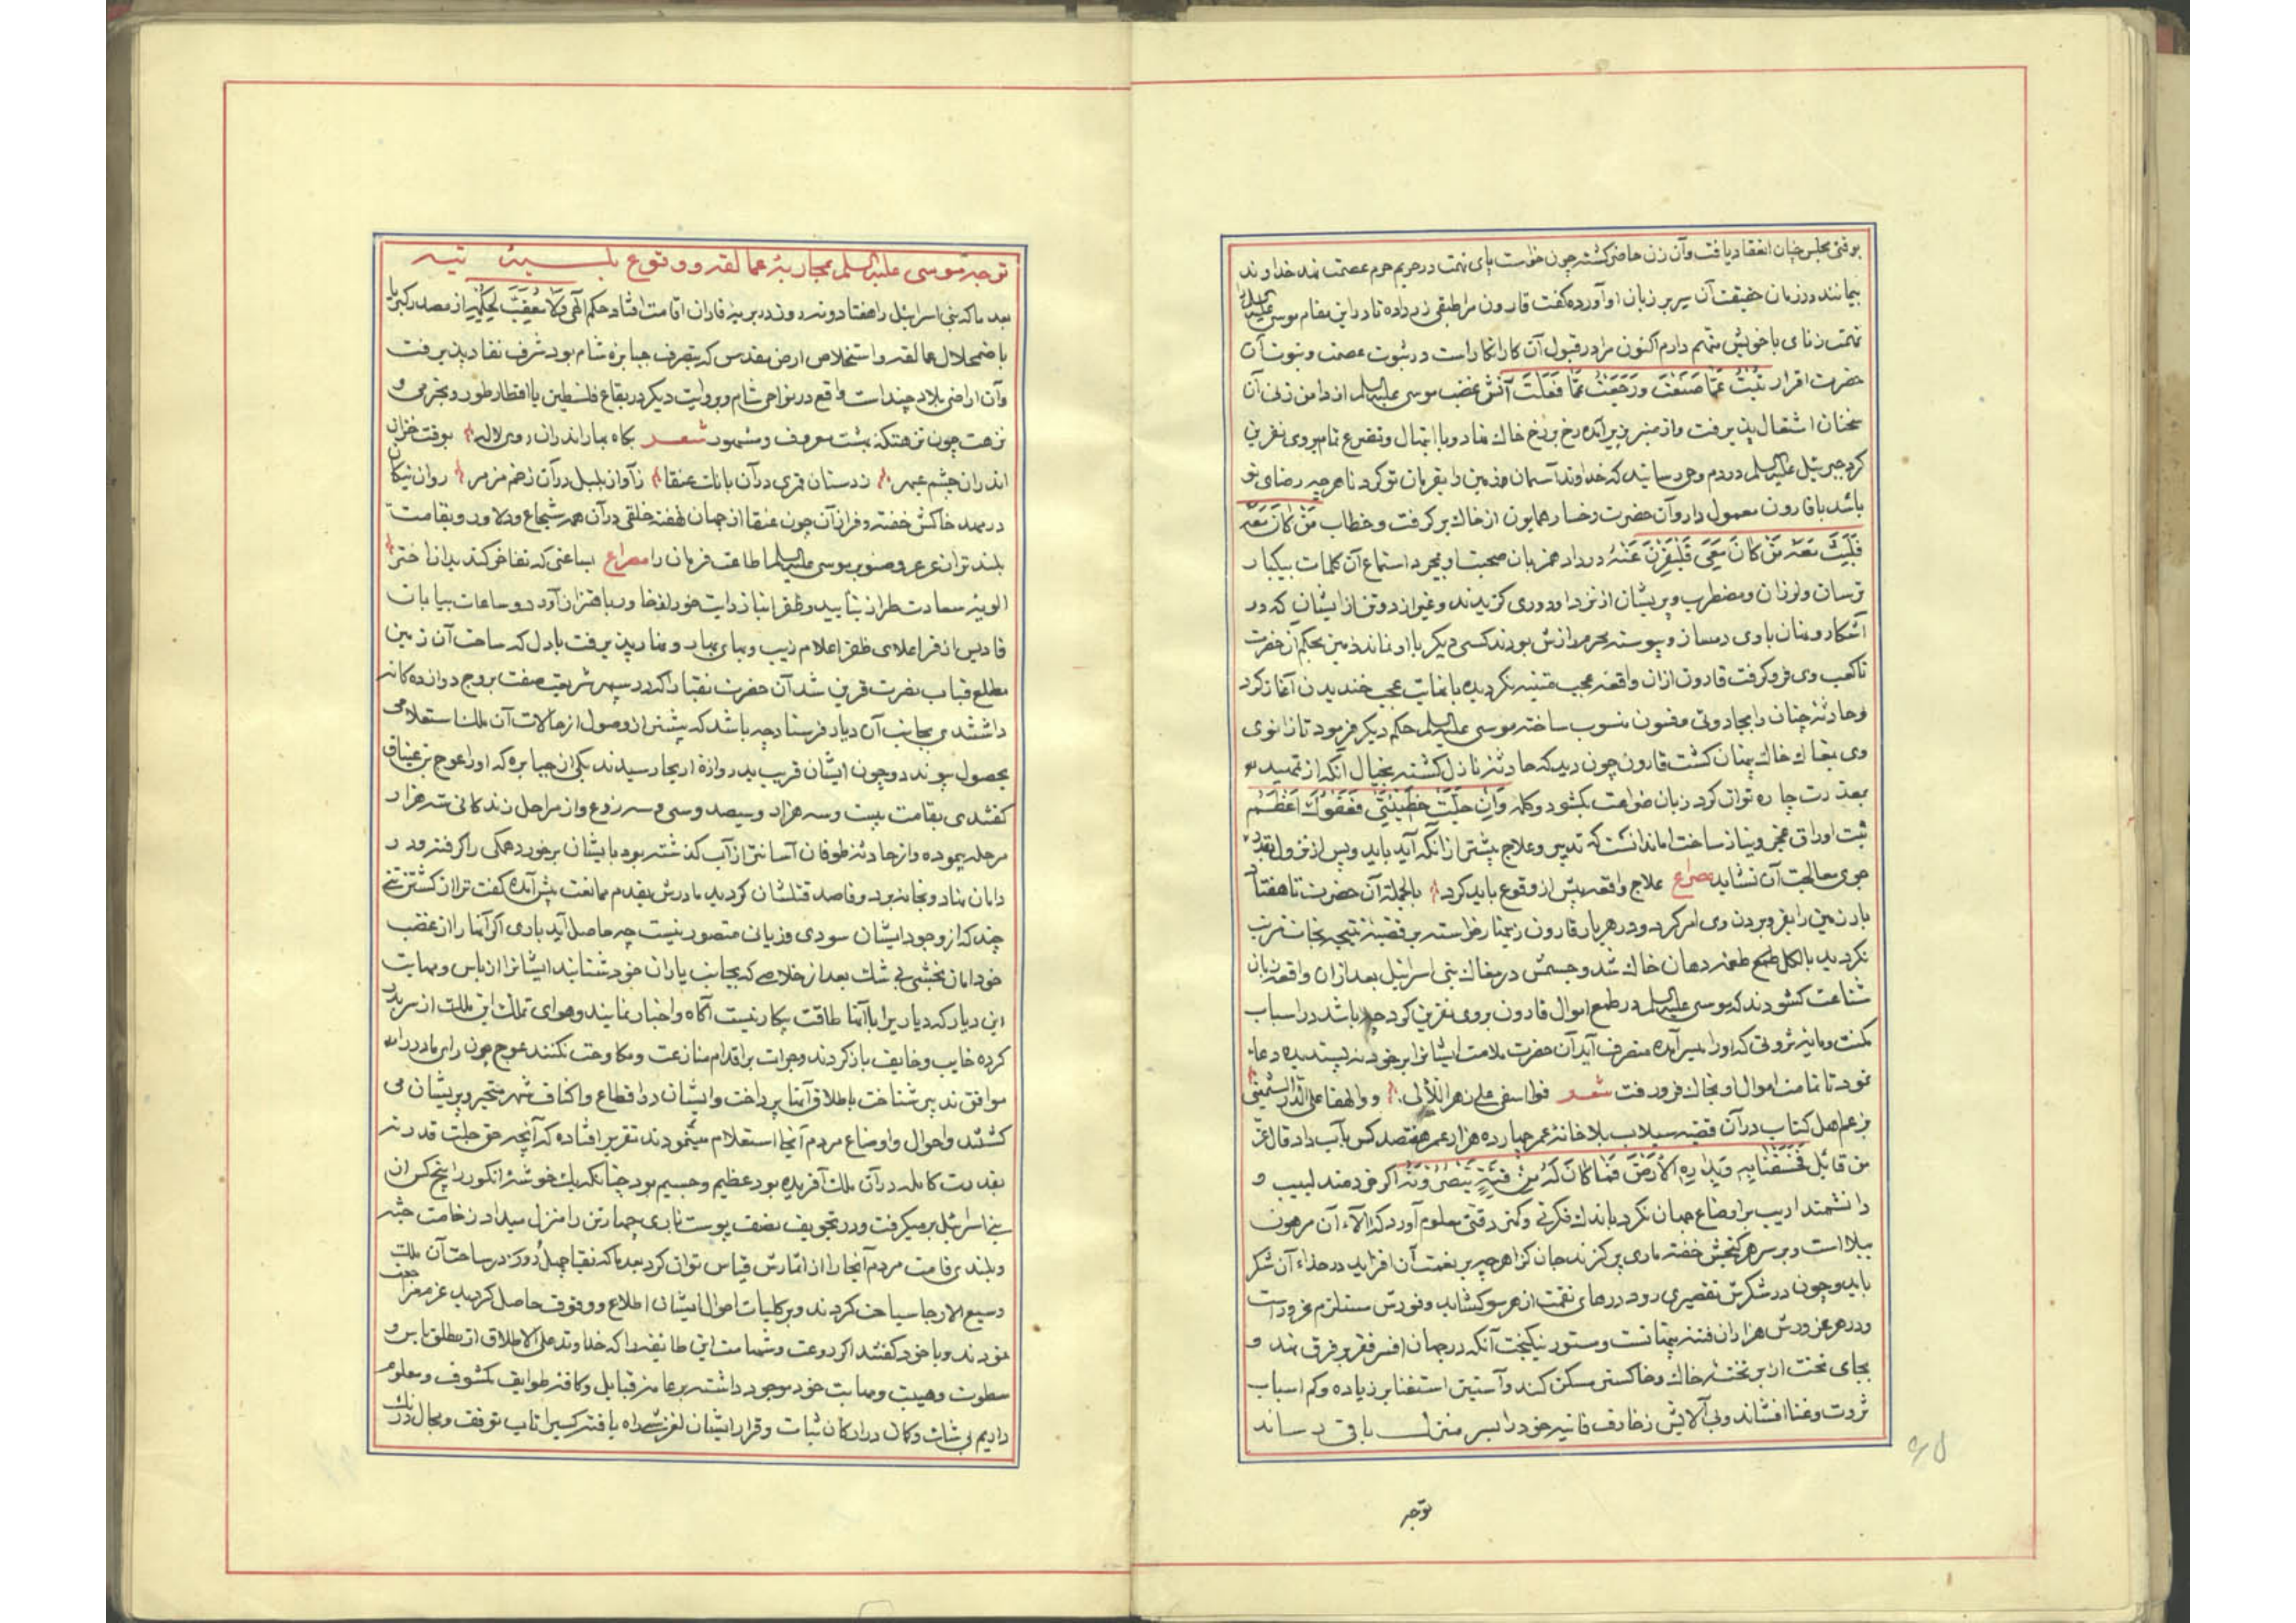 بوقتی مجلس چنان انعقاد یافت وآن زن حاضر گشته چون خواست پای تهمت در حریم حرم عصمت نهد خداوند
بیمانند در زمان حقیقت آن سر بر زبان او آورده گفت قارون مرا طبقی زر داده تا در این مقام موسی علیه السلم را
تهمت زنای با خویش متهم دارم اکنون مرا در قبول آن کار انکار است در ثبوت عصمت ونبوت آن
حضرت اقرار تُبْتُ عَمّا صَنَعْتُ ورَجَعْتُ عَمّا فَعَلْتُ آتش غضب موسی علیه السلم از دامن زنی آن
سخنان اشتعال پذیرفت واز منبر بزیر آمده رخ بر رخ خاک نهاد وبا ابتهال وتضرع تمام بر وی نفرین
کرد جبرئیل علیه السلم در دم وحی رسانید که خداوند آسمان وزمین را بفرمان تو کرد تا هرچه رضای تو
باشد با قارون معمول دار وآن حضرت رخسار همایون از خاک برگرفت وخطاب مَنْ کانَ مَعَهُ
فَلْیَثْبُتْ مَعَهُ مَنْ کانَ مَعِیَ فَلْیَفِرَّنَ عَنْهُ در داد همزبان صحبت او بمجرد استماع آن کلمات بیکبار
ترسان ولرزان ومضطرب وپریشان از نزد او دوری گزیدند وغیر از دو تن از ایشان که در
آشکار ونهان با وی دمساز وپیوسته محرم رازش بودند کسی دیگر با او نماند زمین بحکم آن حضرت
تا کعب وی فرو گرفت قارون ازان واقعه عجب متنبه نگردیده با نهایت عجب خندیدن آغاز کرد
وحادثه چنان را بجادوئی وفسون منسوب ساخته موسی علیه السلم حکم دیگر فرمود تا زانوی
وی بمغاک خاک پنهان گشت قارون چون دید که حادثه نازل گشته بخیال آنکه از تمهید
بمعذرت چاره توان کرد زبان ضراعت بگشود وکلمه وَاِنْ جَلَّتْ خَطِیْئَتِی فَعَفْوُکَ اَعْظَمُ
ثبت اوراق عجز ونیاز ساخت اما ندانست که تدبیر وعلاج پیشتر از آنکه آید باید وپس از نزول
جوی معالجت آن نشاید مصراع علاج واقعه پیش از وقوع باید کرد بالجملة آن حضرت تا هفتاد
بار زمین را بفرو بردن وی امر کرد ودر هر بار قارون زینهار خواسته بر قضیه نتیجه نجات مترتب
نگردید بالکل طعمه دهان خاک شد وجسمش در مغاک بنی اسرائیل بعد ازان واقعه زبان
شناعت گشودند که موسی علیه السلم در طمع اموال قارون بر وی نفرین کرد چه باشد در اسباب
مکنت ومایه ثروتی که او را میسر آمده متصرف آید آن حضرت ملامت ایشانرا بر خود نپسندیده دعا
نمود تا تمامت اموال او بخاک فرو رفت شعر فوا اسفی علی زهر اللآلی ووالهفا علی الدر الثمینی
بزعم اهل کتاب در آن قضیه سیلاب بلا خانهٔ عمر چهارده هزار وهفتصد کس بآب داد قال عزّ
من قائل فَخَسَفْنا بِهِ وَبِدارِهِ الْاَرْضَ فَما کانَ لَهُ مِنْ فِئَةٍ یَنْصُرُونَهُ اگر خردمند لبیب و
دانشمند اریب بر اوضاع جهان نگرد باندک فکرتی وکمتر دقتی معلوم آورد که آلاء آن مرهون
ببلا است وبر سر هر گنجش خفته ماری پر گزند جان گزا هرچه بر نعمت آن افزاید در حذاء آن شکر
باید وچون در شکرش تقصیری رود درهای نقمت از هر سو گشاید وفورش مستلزم غرور است
ودر هر غرورش هزاران فتنه پنهانست ومستور نیکبخت آنکه در جهان افسر فقر بر فرق نهد و
بجای تخت از بر تختهٔ خاک وخاکستر مسکن کند وآستین استغنا بر زیاده وکم اسباب
ثروت وغنا افشاند وبی آلایش زخارف فانیه خود را بسر منزل باقی رساند
توجه
توجه موسی علیه السلم بمحاربهٔ عمالقه ووقوع بلیهٔ تیه
بعد ما که بنی اسرائیل را هفتاد ونه روز در بریهٔ فاران اقامت افتاد حکم آلهی وَلا مُعَقِّبَ لِحُکْمِهِ از مصدر کبریا
باضمحلال عمالقه واستخلاص ارض مقدس که بتصرف جبابرهٔ شام بود شرف نفاذ پذیرفت
وآن اراضی بلاد چند است واقع در نواحی شام وبروایت دیگر در بقاع فلسطین یا اقطار طور وبخرمی و
نزهت چون نزهتکه بهشت معروف ومشهور شعر بگاه بهار اندران روی لاله بوقت خزان
اندران چشم عبهر ز دستان قمری در آن بانگ عنقا ز آواز بلبل در آن زخم مزمر روان نیکان
در مهد خاکش خفته وفراز آن چون عنقا از جهان نهفته خلقی در آن همه شجاع ودلاور وبقامت
بلند تر از عرعر وصنوبر موسی علیه السلم اطاعت فرمان را مصراع بساعتی که تفاخر کند بدان اختر
الویهٔ سعادت طراز بتأیید وظفر انباز رایت خورلفخا ور باهتزاز آورد وساعات بیابان
قادیس از فر اعلای ظفر اعلام زیب وبهای بهار ونهار پذیرفت بادل که ساحت آن زمین
مطلع قباب نصرت قرین شد آن حضرت نقبا را که در سپهر شریعت صفت بروج دوازده گانه
داشتندی بجانب آن دیار فرستاد چه باشد که پیشتر از وصول از حالات آن ملک استعلامی
بحصول پیوندد وچون ایشان قریب بدروازهٔ اریحا رسیدند یکی از جبابره که او را عوج بن عناق
گفتندی بقامت بیست وسه هزار وسیصد وسی وسه زرع واز مراحل زندگانی سه هزار
مرحله پیموده واز حادثهٔ طوفان آسانتر از آب گذشته بود بایشان برخورد همگی را گرفته ودر
دامان نهاد وبخانه برد وقاصد قتلشان گردید مادرش بقدم ممانعت پیش آمده گفت ترا از کشتن تنی
چند که از وجود ایشان سودی وزیانی متصور نیست چه حاصل آید باری اگر آنها را از غضب
خود امان بخشی بی شک بعد از خلاصی که بجانب یاران خود شتابند ایشانرا از باس ومهابت
این دیار که دیاریرا با آنها طاقت پیکار نیست آگاه واخبار نمایند وهوای تملک این ملک از سر بدر
کرده خایب وخایف باز گردند وجرات بر اقدام منازعت ومکاوحت نکنند عوج چون رای مادر را
موافق تدبیر شناخت باطلاق آنها پرداخت وایشان در اقطاع واکناف شهر متحیر وپریشان می
گشتند واحوال واوضاع مردم آنجا استعلام مینمودند تقریر افتاده که آنچه حق جلت قدرته
بقدرت کامله در آن ملک آفریده بود عظیم وجسیم بود چنانکه یک خوشهٔ انگور را پنج کس از
بنی اسرائیل بر میگرفت ودر تجویف نصف پوست ناری چهار تن را منزل میداد ز ضخامت جثه
وبلندی قامت مردم آنجا را از اثمارش قیاس توان کرد بعد ما که نقبا چهل روز در ساحت آن ملک
وسیع الارجا سیاحت کردند وبر کلیات احوال ایشان اطلاع ووقوف حاصل گردید عزم مراجعت
نمودند وبا خود گفتند اگر روعت وشهامت این طایفه را که خداوند علی الاطلاق از مطلق باس و
سطوت وهیبت ومهابت خود موجود داشته بر عامهٔ قبایل وکافهٔ طوایف مکشوف ومعلوم
داریم بی شک وگمان در ارکان ثبات وقرار ایشان لغزش راه یافته کسیرا تاب توقف ومجال درنگ